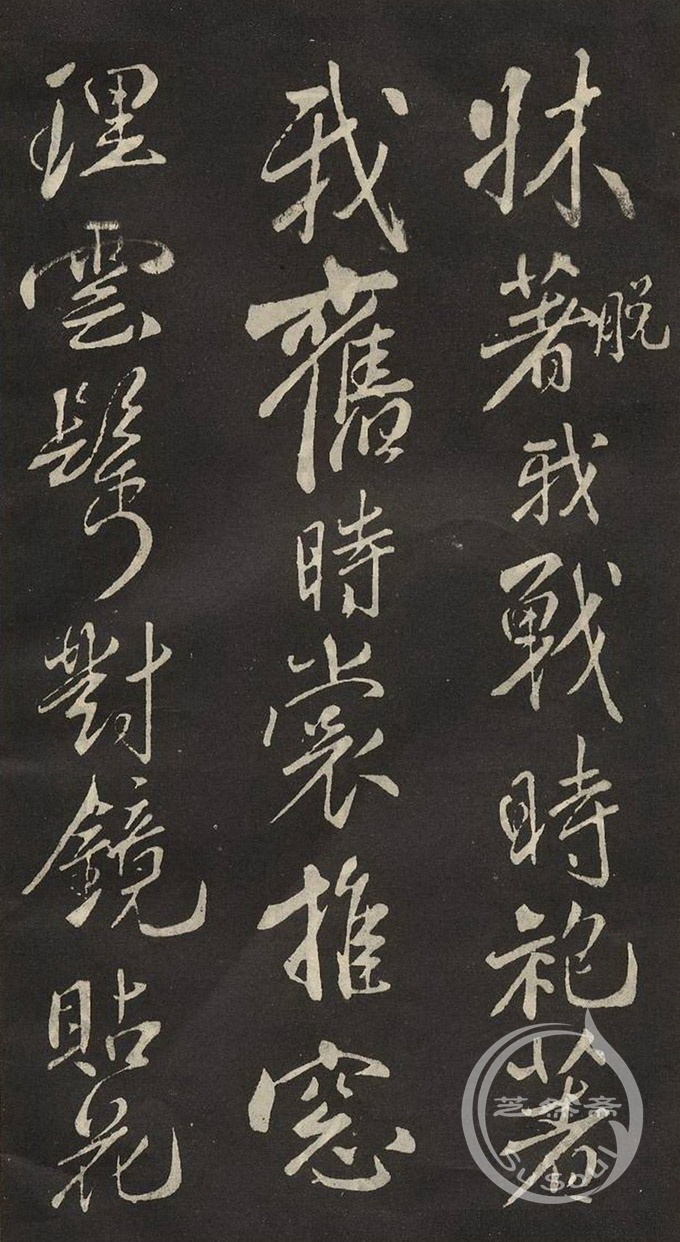 牀著脱我戰時袍著
我舊時裳推窓
理雲鬢對鏡貼花
芝然斋